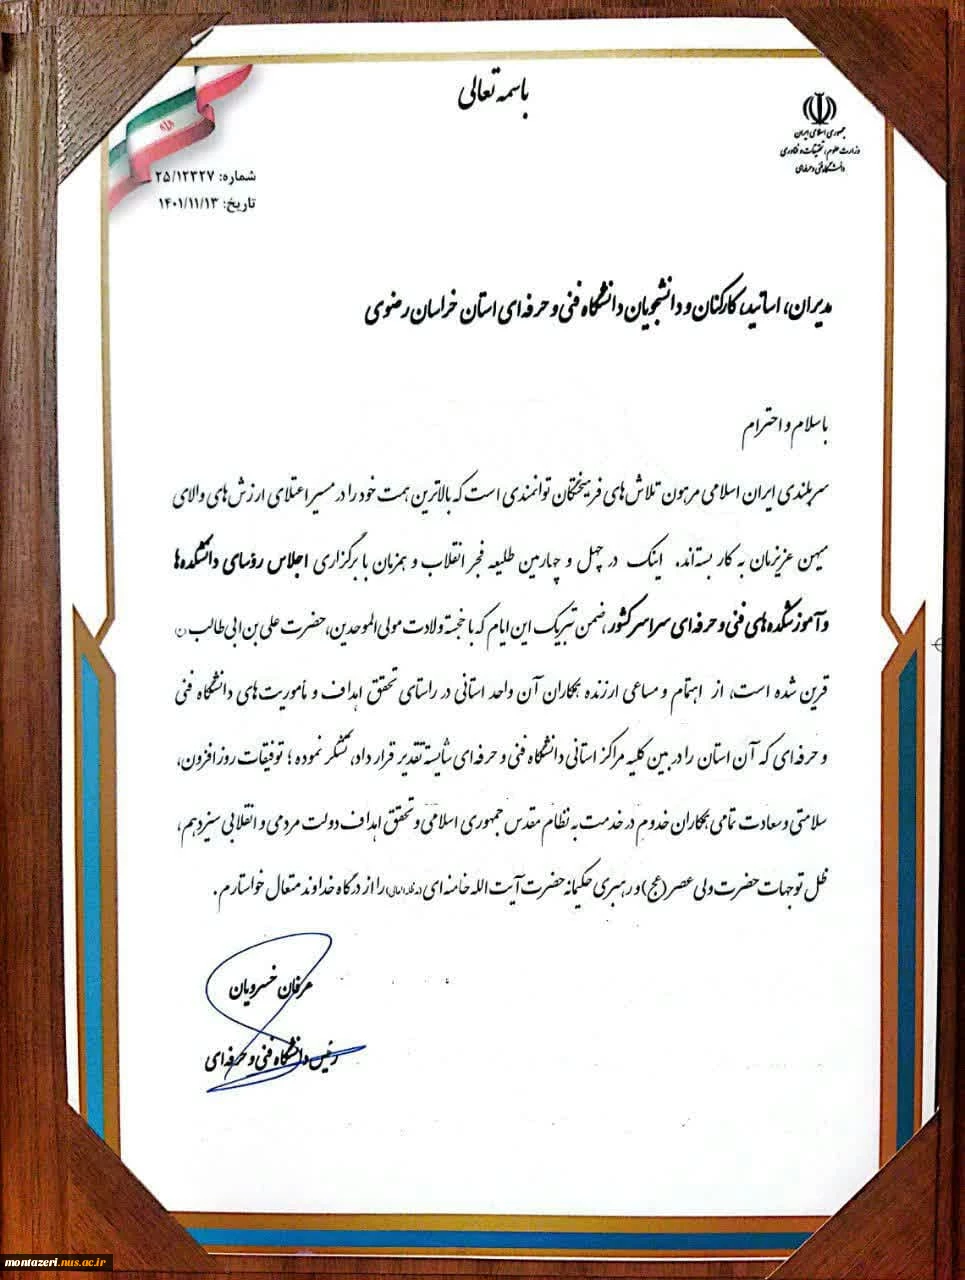 باسمه تعالی
جمهوری اسلامی ایران
وزارت علوم، تحقیقات و فناوری
دانشگاه فنی و حرفه‌ای
شماره: ۲۵/۱۲۳۲۷
تاریخ: ۱۴۰۱/۱۱/۱۳
مدیران، اساتید، کارکنان و دانشجویان دانشگاه فنی و حرفه‌ای استان خراسان رضوی
با سلام و احترام
سربلندی ایران اسلامی مرهون تلاش‌های فرهیختگان توانمندی است که بالاترین همت خود را در مسیر اعتلای ارزش‌های والای
میهن عزیزمان به کار بسته‌اند. اینک در چهل و چهارمین طلیعه فجر انقلاب و همزمان با برگزاری اجلاس رؤسای دانشکده‌ها
و آموزشکده‌های فنی و حرفه‌ای سراسر کشور، ضمن تبریک این ایام که با خجسته ولادت مولی الموحدین، حضرت علی بن ابی طالب
قرین شده است، از اهتمام و مساعی ارزنده همکاران آن واحد استانی در راستای تحقق اهداف و مأموریت‌های دانشگاه فنی
و حرفه‌ای که آن استان را در بین کلیه مراکز استانی دانشگاه فنی و حرفه‌ای شایسته تقدیر قرار داد، تشکر نموده؛ توفیقات روزافزون،
سلامتی و سعادت تمامی همکاران خدوم در خدمت به نظام مقدس جمهوری اسلامی و تحقق اهداف دولت مردمی و انقلابی سیزدهم،
ظل توجهات حضرت ولی عصر (عج) و رهبری حکیمانه حضرت آیت الله خامنه‌ای (مدظله العالی) را از درگاه خداوند متعال خواستارم.
عرفان خسرویان
رئیس دانشگاه فنی و حرفه‌ای
montazeri.nus.ac.ir